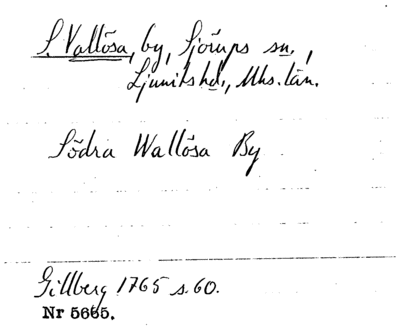 S. Vallösa, by, Sjörups sn.,
Ljunits hd., Mhs. län.
Södra Wallösa By
Gillberg 1765 s. 60.
Nr 5665.